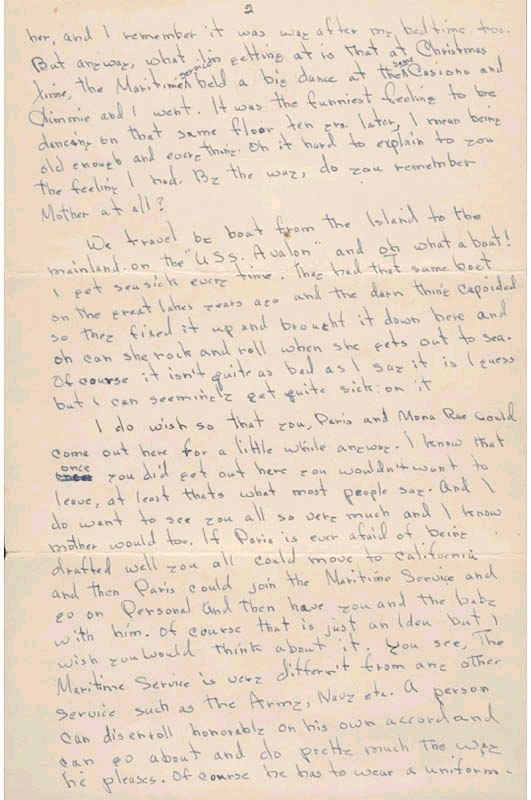 2
her, and I remember it was way after my bedtime too.
But anyway, what I'm getting at is that at Christmas
time, the Maritime service held a big dance at the same Casiono and
Jimmie and I went. It was the funniest feeling to be
dancing on that same floor ten yrs. later, I mean being
old enough and everything. Oh it hard to explain to you
the feeling I had. By the way, do you remember
Mother at all?
We travel by boat from the Island to the
mainland on the "U.S.S. Avalon" and oh what a boat!
I get seasick every time. They had that same boat
on the great lakes years ago and the darn thing capsided
so they fixed it up and brought it down here and
oh can she rock and roll when she gets out to sea.
Of course it isn't quite as bad as I say it is I guess
but I can seemingly get quite sick on it
I do wish so that you, Paris and Mona Rae could
come out here for a little while anyway. I know that
once you did get out here you wouldn't want to
leave, at least thats what most people say. And I
do want to see you all so very much and I know
mother would too. If Paris is ever afaid of being
drafted well you all could move to California
and then Paris could join the Maritime Service and
go on Personal and then have you and the baby
with him. Of course that is just an Idea but I
wish you would think about it. You see, The
Maritime Service is very differnt from any other
service such as the Army, Navy etc. A person
can disenroll honorable on his own accord and
can go about and do pretty much the way
he pleases. Of course he has to wear a uniform.